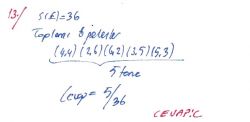 13-/ S(E)=36
Toplamı 8 gelenler
(4,4) (2,6) (6,2) (3,5) (5,3)
5 tane
Cevap = 5/36
CEVAP: C